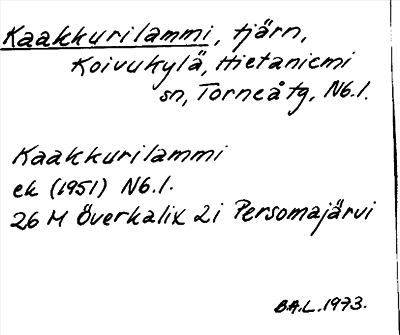 Kaakkurilammi, tjärn,
Koivukylä, Hietaniemi
sn, Torneå tg, N6.l.
Kaakkurilammi
ek (1951) N6.l.
26 M Överkalix 2i Persomajärvi
B.A.L. 1973.